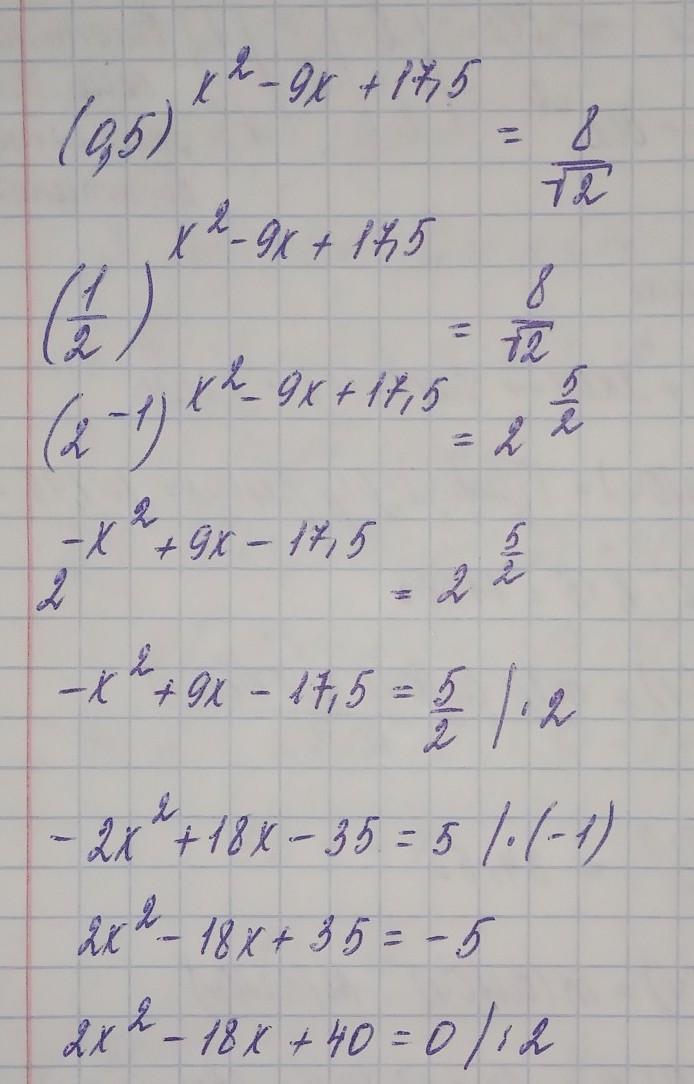 (0,5)^{x² - 9x + 17,5} = 8/√2
(1/2)^{x² - 9x + 17,5} = 8/√2
(2^{-1})^{x² - 9x + 17,5} = 2^{5/2}
2^{-x² + 9x - 17,5} = 2^{5/2}
-x² + 9x - 17,5 = 5/2 | · 2
-2x² + 18x - 35 = 5 | · (-1)
2x² - 18x + 35 = -5
2x² - 18x + 40 = 0 | : 2